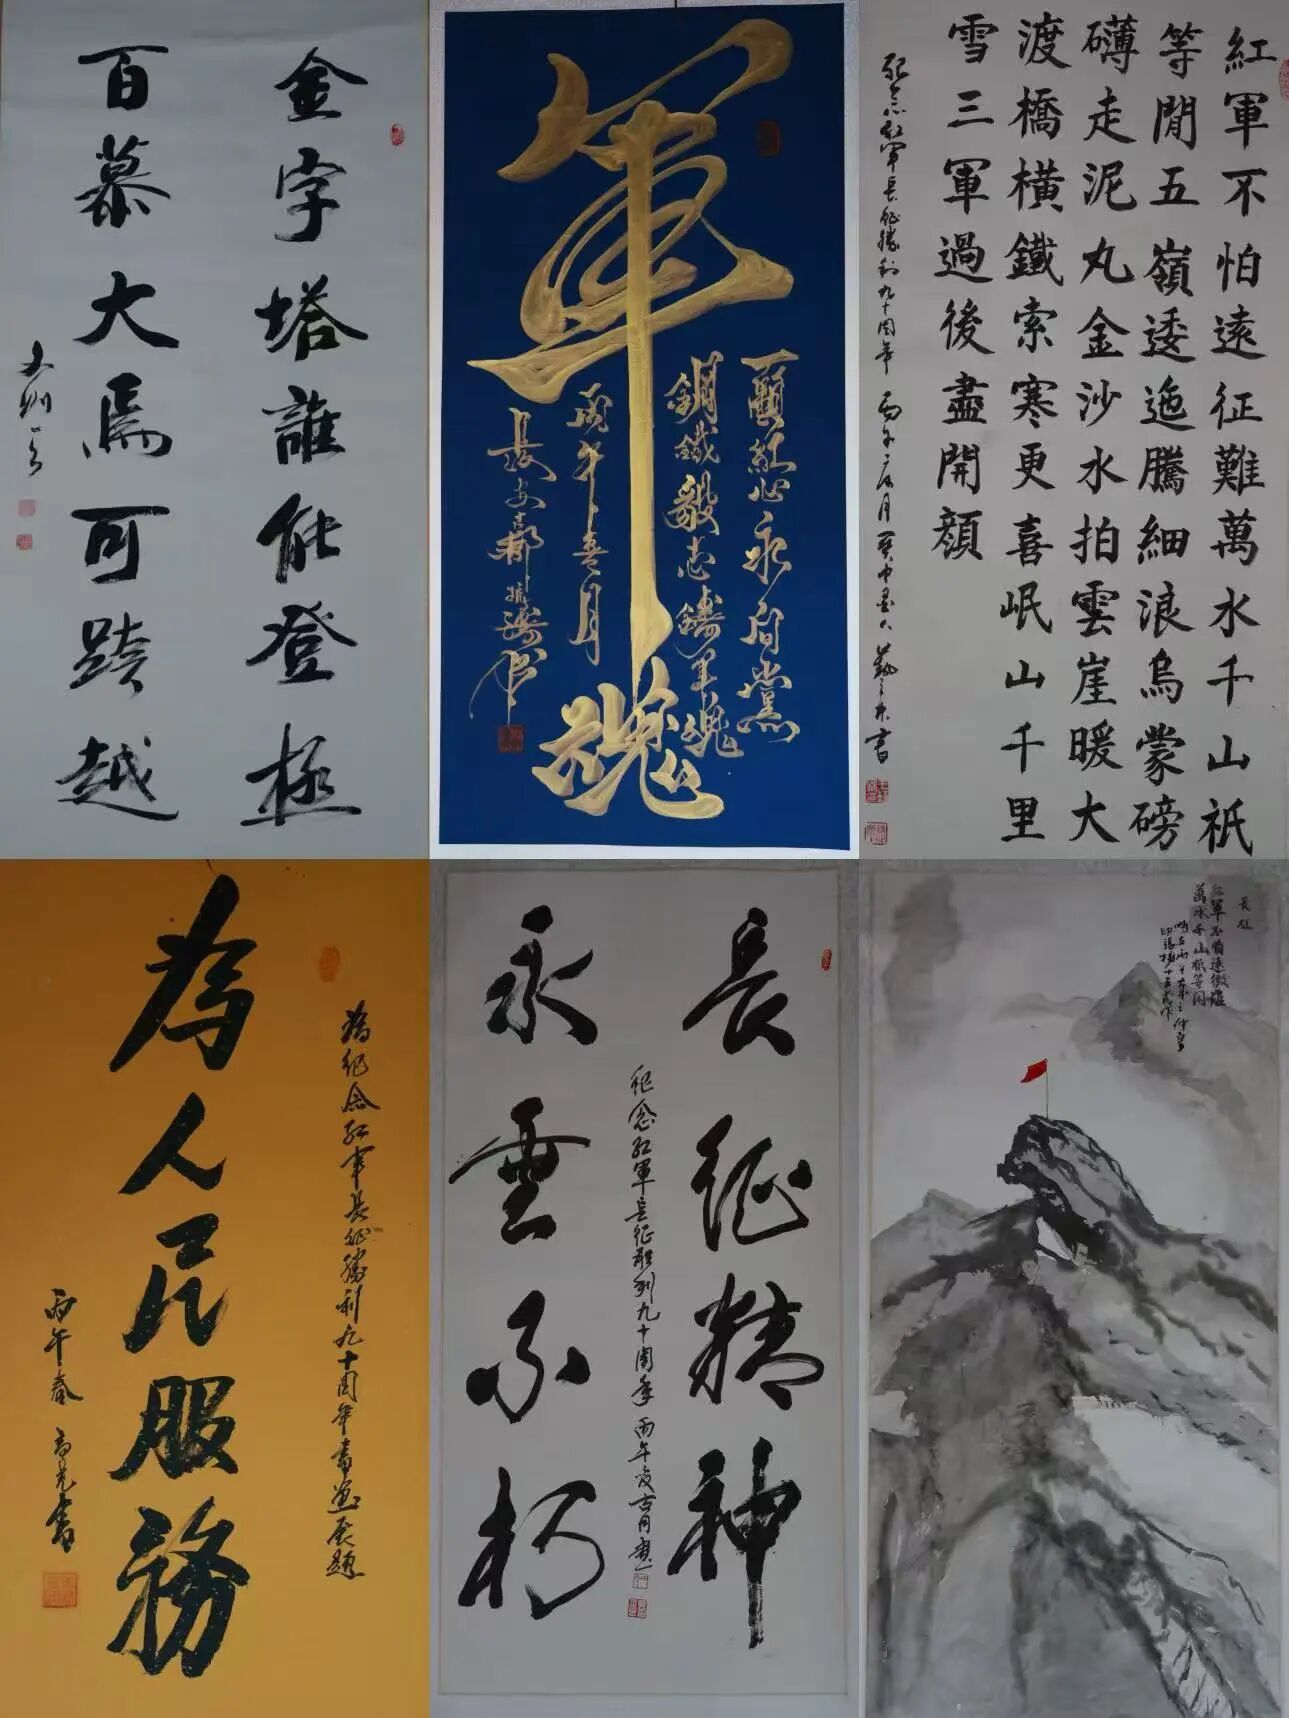 金字塔誰能登極
百慕大焉可跨越
軍魂
一顆紅心永向黨
鋼鐵毅志鑄軍魂
丙午春月
長安
紅軍不怕遠征難萬水千山祇
等閒五嶺逶迤騰細浪烏蒙磅
礴走泥丸金沙水拍雲崖暖大
渡橋橫鐵索寒更喜岷山千里
雪三軍過後盡開顏
紀念紅軍長征勝利九十周年
為紀念紅軍長征勝利九十周年書畫展題
為人民服務
丙午春
長征精神
永垂不朽
紀念紅軍長征勝利九十周年丙午
長征
紅軍不怕遠征難
萬水千山祇等閒